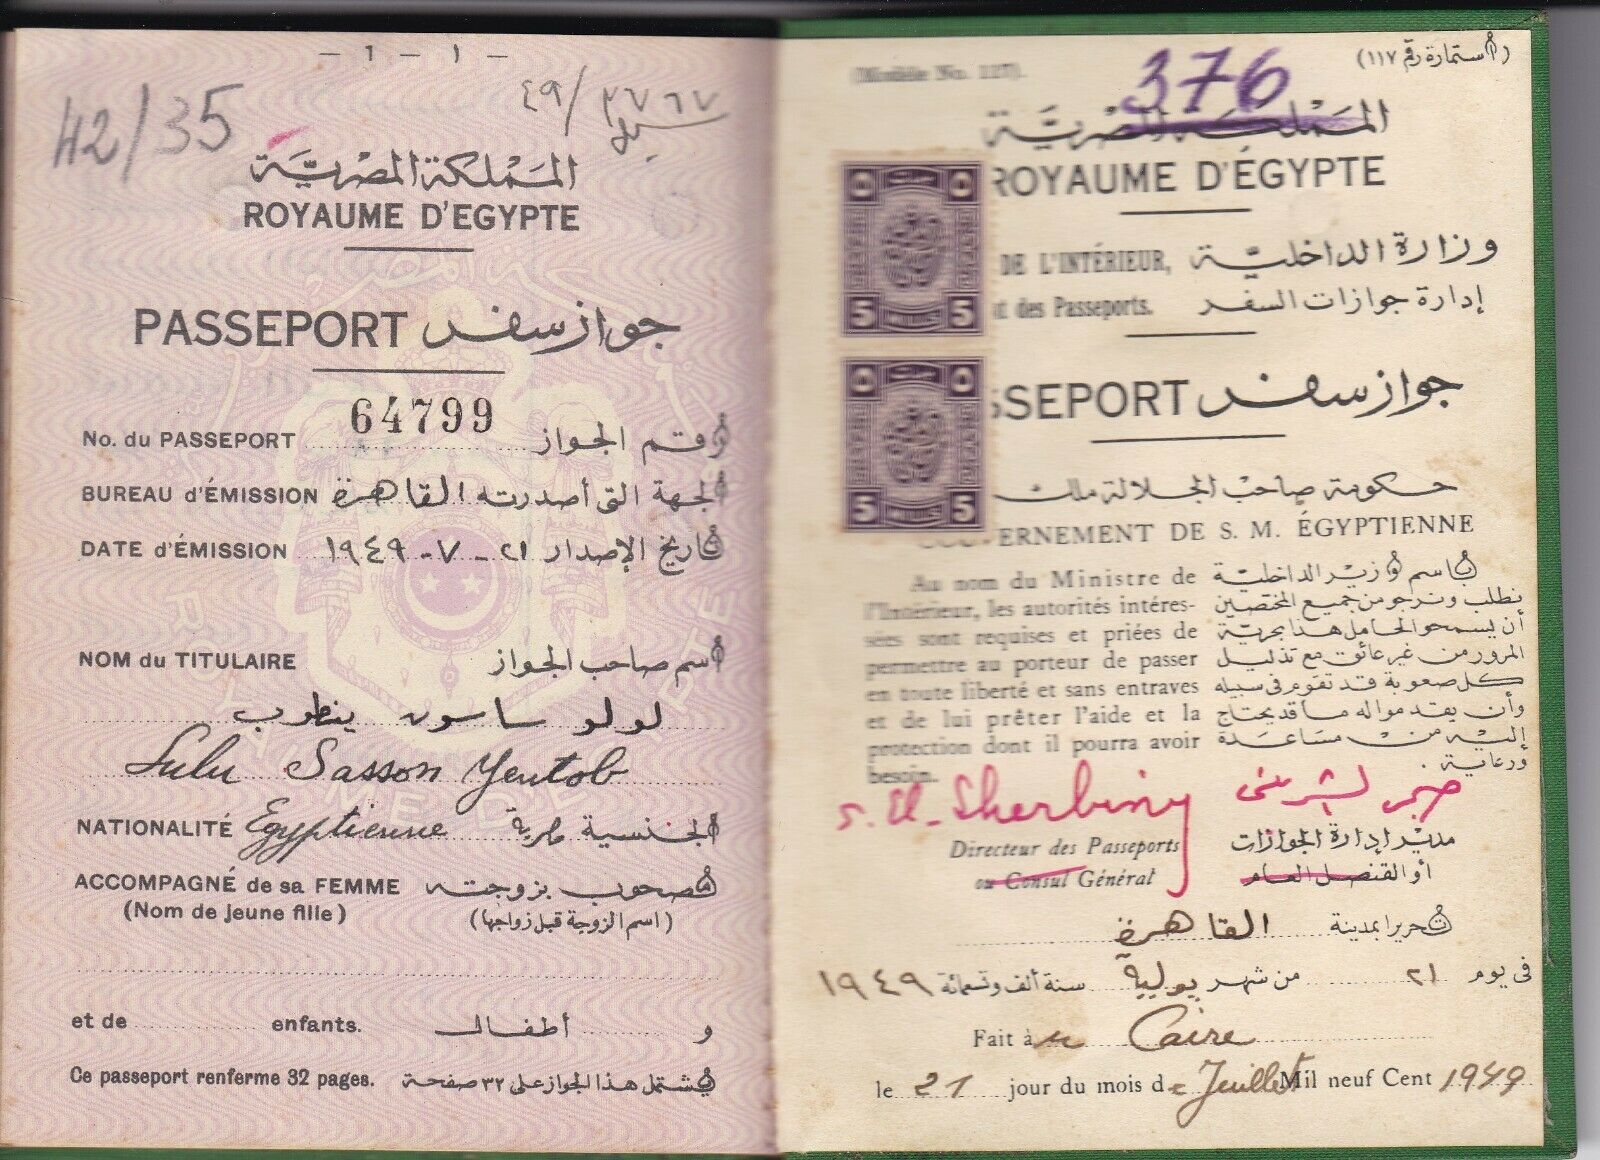 - 1 - ١ -
42/35
٤٩/٣٧٦٧
المملكة المصرية
ROYAUME D'EGYPTE
PASSEPORT جواز سفر
64799
No. du PASSEPORT رقم الجواز
BUREAU d'ÉMISSION القاهرة الجهة التى أصدرته
DATE d'ÉMISSION ٢١-٧-١٩٤٩ تاريخ الإصدار
NOM du TITULAIRE اسم صاحب الجواز
لولو ساسون ينطوب
Lulu Sasson Yentob
NATIONALITÉ Egyptienne مصرية الجنسية
ACCOMPAGNÉ de sa FEMME مصحوب بزوجته
(Nom de jeune fille) (اسم الزوجة قبل زواجها)
et de enfants. و أطفال
Ce passeport renferme 32 pages. يشتمل هذا الجواز على ٣٢ صفحة
(Modèle No. 117). (استمارة رقم ١١٧)
376
المملكة المصرية
ROYAUME D'ÉGYPTE
DE L'INTÉRIEUR, وزارة الداخلية
des Passeports. إدارة جوازات السفر
SSEPORT جواز سفر
٥ ٥
5 MILLIEMES 5
٥ ٥
5 MILLIEMES 5
حكومة صاحب الجلالة ملك
VERNEMENT DE S. M. ÉGYPTIENNE
Au nom du Ministre de
l'Intérieur, les autorités intéres-
sées sont requises et priées de
permettre au porteur de passer
en toute liberté et sans entraves
et de lui prêter l'aide et la
protection dont il pourra avoir
besoin.
باسم وزير الداخلية
نطلب ونرجو من جميع المختصين
أن يسمحوا لحامل هذا بحرية
المرور من غير عائق مع تذليل
كل صعوبة قد تقوم فى سبيله
وأن يقدموا له ما قد يحتاج
إليه من مساعدة
ورعاية.
S. El-Sherbiny
Directeur des Passeports مدير إدارة الجوازات
ou Consul Général أو القنصل العام
تحريرا بمدينة القاهرة
فى يوم ٢١ من شهر يولية سنة ألف وتسعمائة ١٩٤٩
Fait à Caire
le 21 jour du mois de Juillet Mil neuf Cent 1949